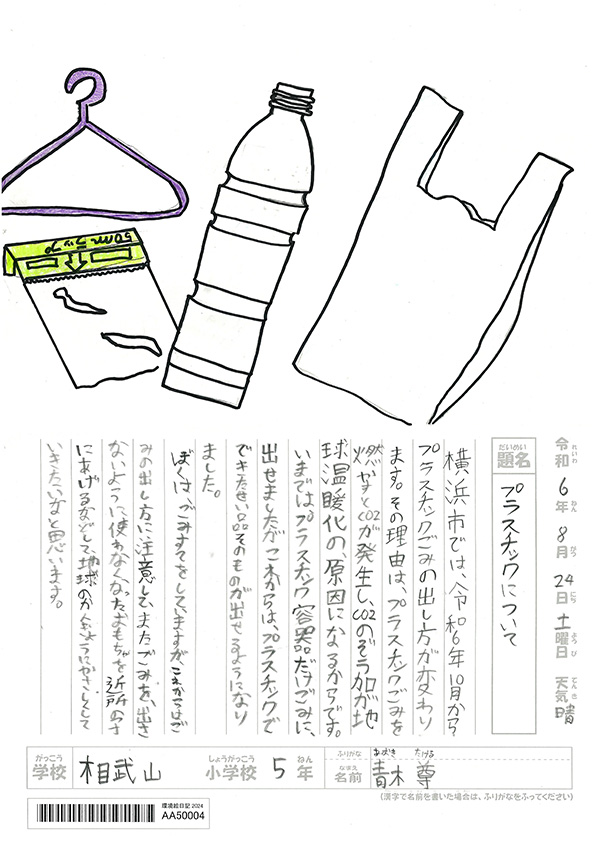 50m ラップ
れいわ ねん がつ にち ようび てんき
令和 6年 8月 24日 土曜日 天気 晴
だいめい
題名 プラスチックについて
横浜市では、令和6年10月から
プラスチックごみの出し方が変わり
ます。その理由は、プラスチックごみを
燃やすとCO2が発生し、CO2のぞう加が地
球温暖化の、原因になるからです。
いまでは、プラスチック容器だけごみに、
出せましたがこれからは、プラスチックで
できたせい品そのものが出せるようになり
ました。
ぼくは、ごみすてをしていますが、これからはご
みの出し方に注意して、またごみを、出さ
ないように、使わなくなったおもちゃを近所の子
にあげるなどして、地球のかんきょうにやさしくして
いきたいなと思います。
がっこう しょうがっこう ねん ふりがな あおき たける
学校 相武山 小学校 5年 なまえ 名前 青木 尊
(漢字で名前を書いた場合は、ふりがなをふってください)
環境絵日記 2024
AA50004